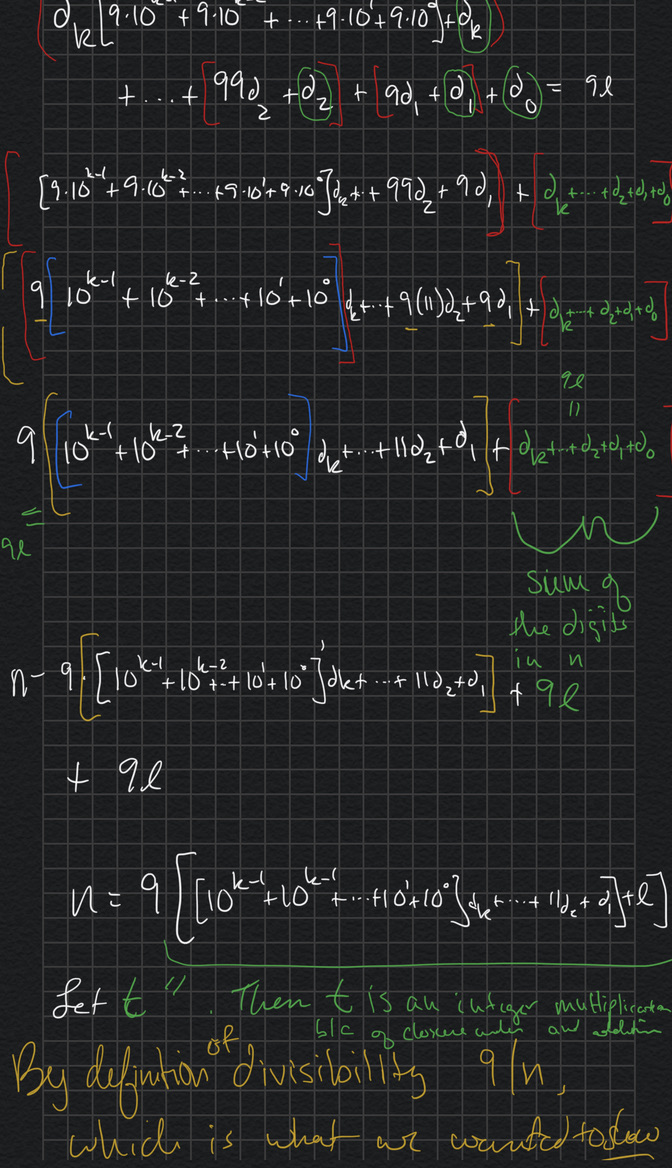 (d_k[9·10^{k-1} + 9·10^{k-2} + ... + 9·10^1 + 9·10^0] + d_k)
+ ... + [99d_2 + d_2] + [9d_1 + d_1] + d_0 = 9l
[[9·10^{k-1} + 9·10^{k-2} + ... + 9·10^1 + 9·10^0]d_k + .. + 99d_2 + 9d_1] + [d_k + ... + d_2 + d_1 + d_0]
[[9[10^{k-1} + 10^{k-2} + ... + 10^1 + 10^0]]d_k + .. + 9(11)d_2 + 9d_1] + [d_k + ... + d_2 + d_1 + d_0]
9l
=
9[[10^{k-1} + 10^{k-2} + ... + 10^1 + 10^0]d_k + ... + 11d_2 + d_1] + [d_k + .. + d_2 + d_1 + d_0]
=
9l
sum of
the digits
in n
n - 9·[[10^{k-1} + 10^{k-2} + .. + 10^1 + 10^0]'d_k + ... + 11d_2 + d_1] + 9l
+ 9l
n = 9[[10^{k-1} + 10^{k-1} + ... + 10^1 + 10^0]d_k + ... + 11d_2 + d_1] + l]
Let t " . Then t is an integer multiplication
b/c of closure under and addition
By definition of divisibility 9|n,
which is what we wanted to show